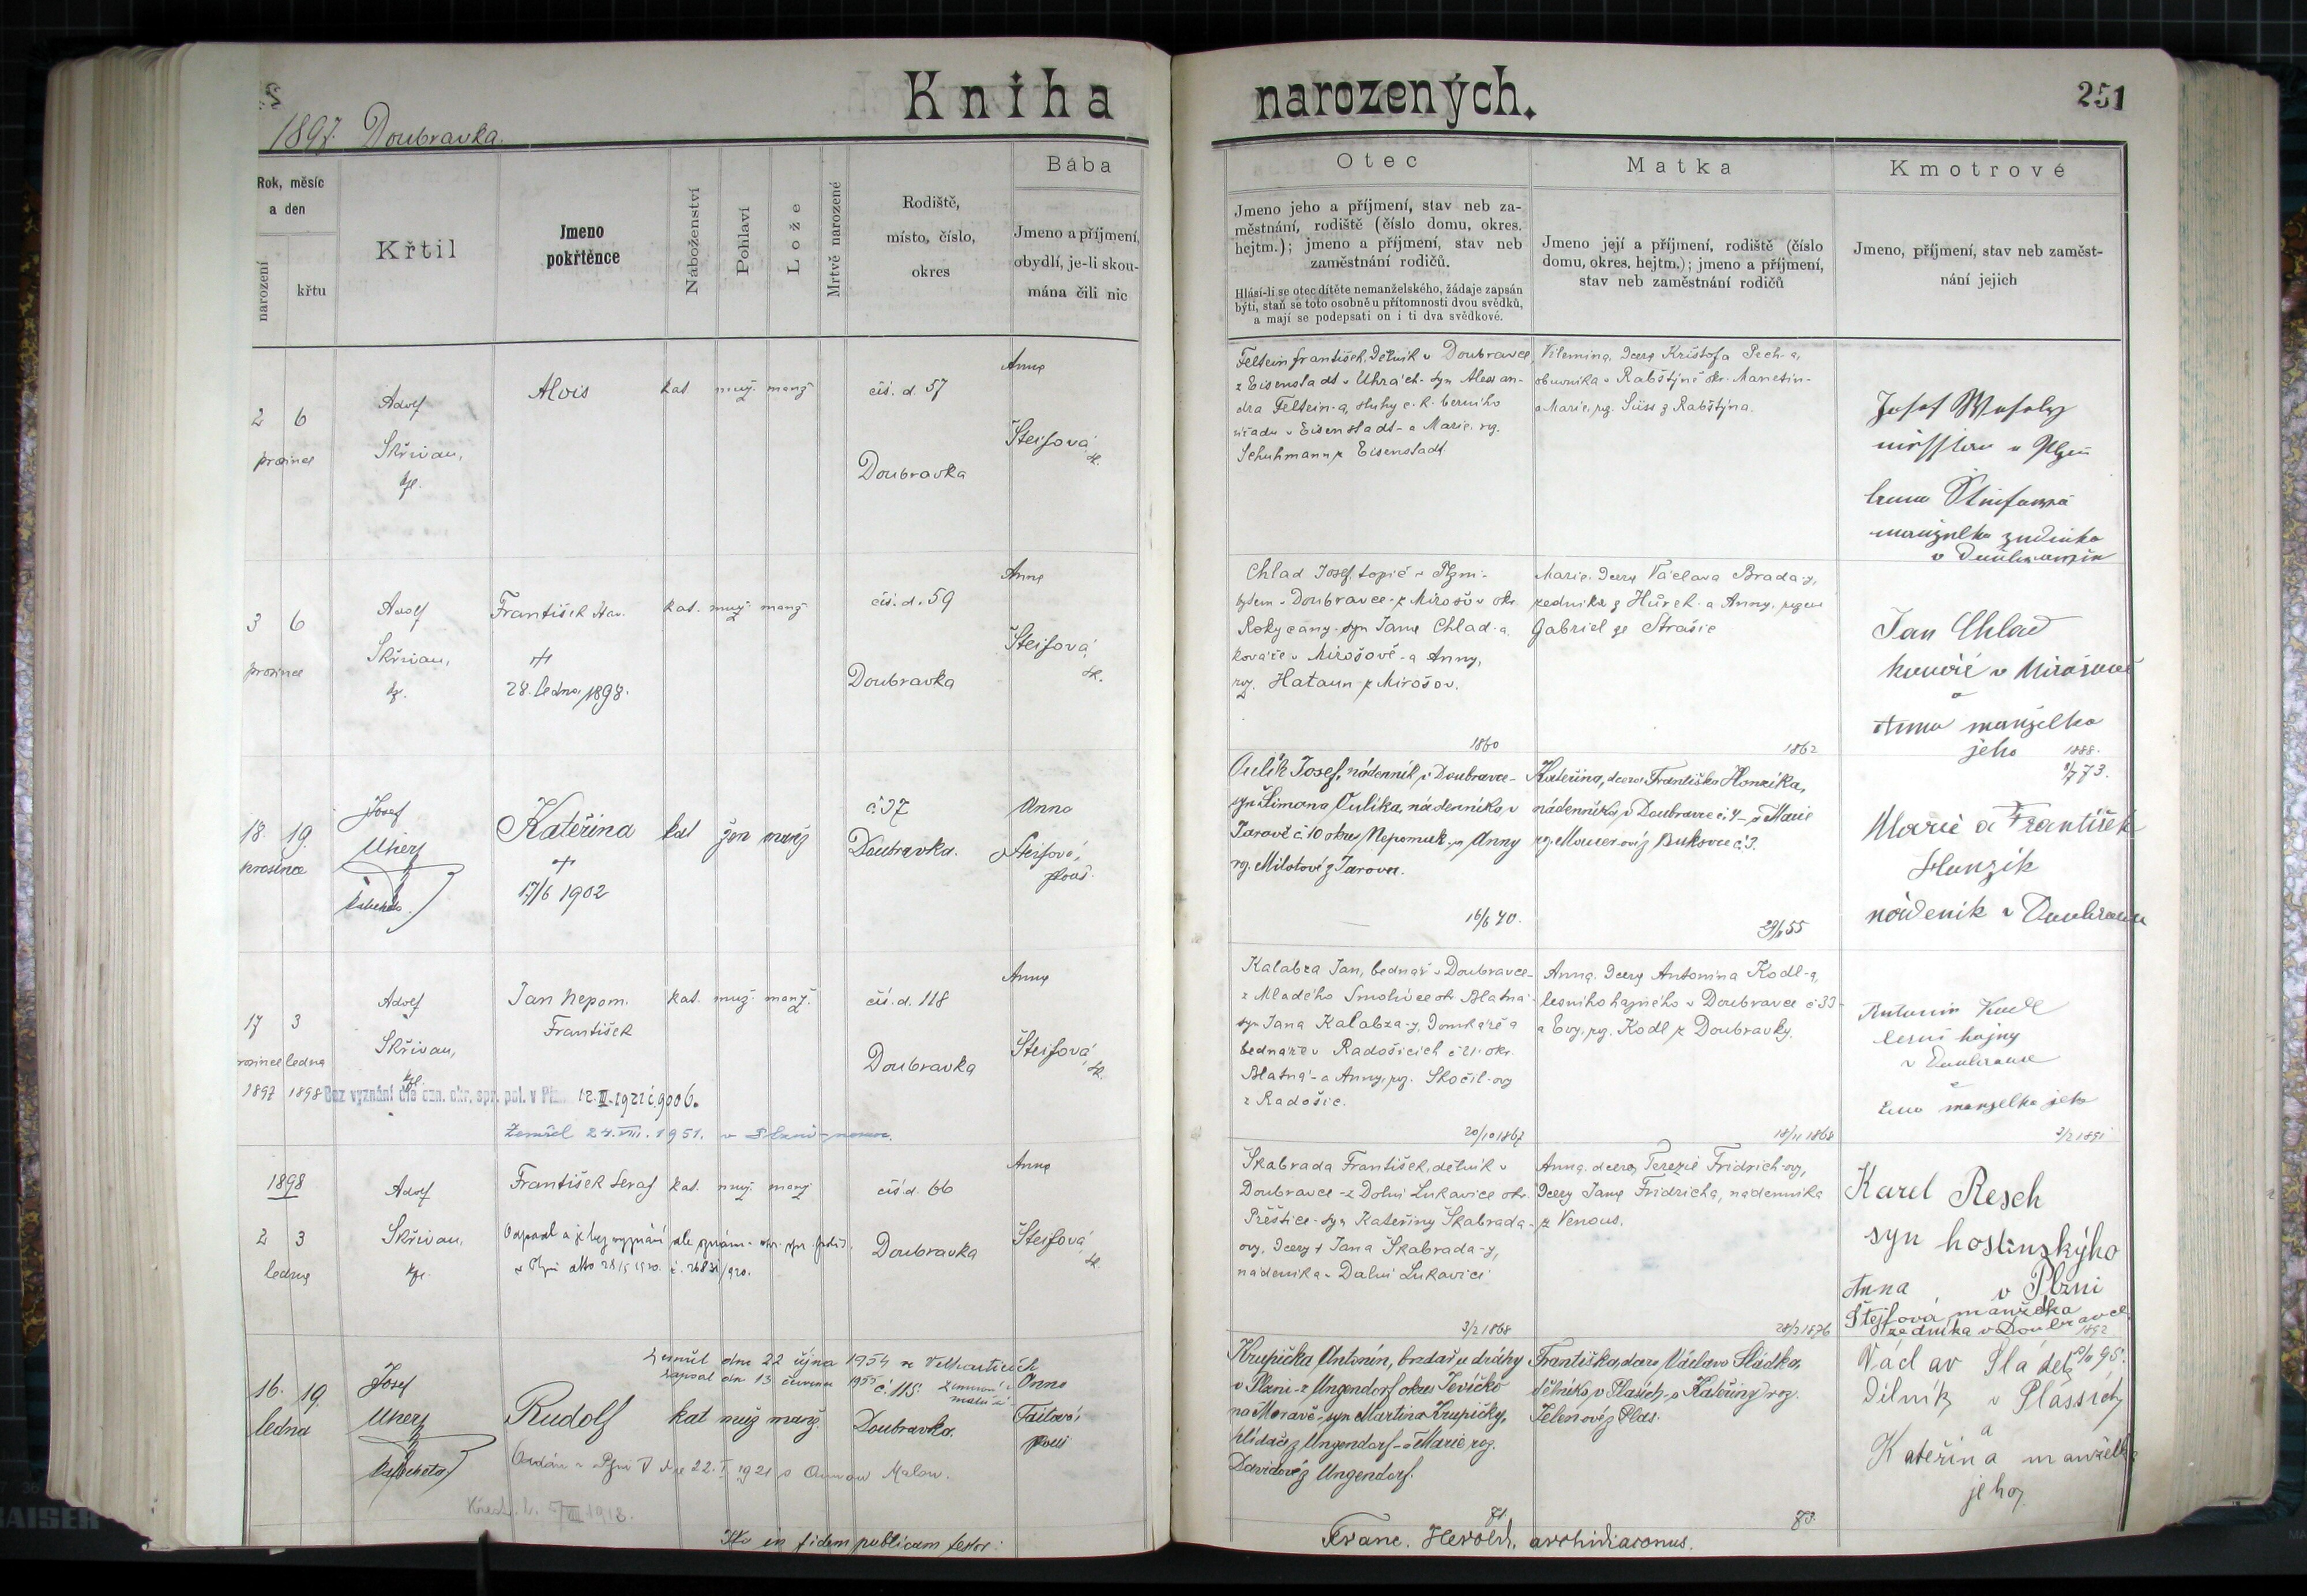 Kniha narozených.
251
1897. Doubravka.
Rok, měsíc
a den
narození
křtu
Křtil
Jmeno
pokřtěnce
Náboženství
Pohlaví
Lože
Mrtvě narozené
Rodiště,
místo, číslo,
okres
Bába
Jmeno a příjmení,
obydlí, je-li skou-
mána čili nic
Otec
Jmeno jeho a příjmení, stav neb za-
městnání, rodiště (číslo domu, okres.
hejtm.); jmeno a příjmení, stav neb
zaměstnání rodičů.
Hlásí-li se otec dítěte nemanželského, žádaje zapsán
býti, staň se toto osobně u přítomnosti dvou svědků,
a mají se podepsati on i ti dva svědkové.
Matka
Jmeno její a příjmení, rodiště (číslo
domu, okres. hejtm.); jmeno a příjmení,
stav neb zaměstnání rodičů
Kmotrové
Jmeno, příjmení, stav neb zaměst-
nání jejich
2 6
prosince
Adolf
Skřivan,
Alois
kat. muž. manž.
čís. d. 57
Doubravka
Anna
Štejfová
Feltein František, dělník v Doubravce,
z Eisenstadt v Uhrách - syn Alexan-
dra Feltein-a, sluhy c. k. berního
úřadu v Eisenstadt - a Marie, roz.
Schuhmann z Eisenstadt
Vilemina, dcera Kristofa Pech-a,
obuvníka v Rabštýně okr. Manetin-
a Marie, roz. Süss z Rabštýna.
Josef
v Plzni
manželka zedníka
3 6
prosince
Adolf
Skřivan,
František
28. ledna 1898.
kat. muž. manž.
čís. d. 59
Doubravka
Anna
Štejfová
Chlad Josef, topič v Plzni-
bytem v Doubravce - z Mirošov okr.
Rokycany - syn Jana Chlad-a,
kováře v Mirošově - a Anny,
roz. Hataun z Mirošov.
1860
Marie, dcera Václava Brada-y,
zedníka z Hůrek - a Anny, rozené
Gabriel ze Strašic
1862
Jan Chlad
kovář v Mirošově
a
Anna manželka
jeho
1888.
18. 19.
prosince
Josef
Uherz
Kateřina
17/6 1902
kat žen manž
č 37
Doubravka.
Anna
Štejfová,
Oulík Josef, nádenník v Doubravce -
syn Šimona Oulíka, nádenníka v
Jarově č 10 okres Nepomuk - a Anny
roz. Milotové z Jarova.
16/6 70.
Kateřina, dcera Františka Honzíka,
nádenníka v Doubravce č. 4 - a Marie
roz. Mauerové z Bukovce č 3.
73.
Marie a František
Honzík
nádeník v Doubravce
17 3
prosince ledna
1897 1898
Adolf
Skřivan,
Jan Nepom.
František
kat. muž. manž.
čís. d. 118
Doubravka
Anna
Štejfová
Bez vyznání dle ozn. okr. spr. pol. v Plzni 12. III. 1921 č. 9006.
Zemřel 24. VIII. 1951. v Plzni
Kalabza Jan, bednář v Doubravce -
z Mladého Smolivce okr Blatná -
syn Jana Kalabza-y, domkáře a
bednáře v Radošicích č 21. okr.
Blatná - a Anny, roz. Skočil-ovy
z Radošic.
20/10 1867
Anna, dcera Antonína Kodl-a,
lesního hajného v Doubravce č 33 -
a Evy, roz. Kodl z Doubravky.
18/11 1868
Antonín Kodl
lesní hajný
v Doubravce
a
Eva manželka jeho
1898
2 3
ledna
Adolf
Skřivan,
František Seraf
kat. muž. manž
čís d. 66
Doubravka
Anna
Štejfová
Odpadl a je bez vyznání dle oznám. okr. spr. polit.
v Plzni
Škabrada František, dělník v
Doubravce - z Dolní Lukavice okr.
Přeštice - syn Kateřiny Škabrada-
ovy, dcery † Jana Škabrada-y,
nádeníka v Dolní Lukavici
3/2 1868
Anna, dcera Terezie Fridrich-ovy,
dcery Jana Fridricha, nádenníka
z Venous.
28/7 1876
Karel Resch
syn hostinskýho
v Plzni
Anna
Štejfová, manželka
zedníka v Doubravce
1892
16. 19.
ledna
Josef
Uherz
Zemřel dne 22 října 1954 ve Velharticích
Zapsal dne 13 července 1955
Rudolf
kat muž manž
č 115.
Doubravka.
Anna
Taitlová,
Oddán v Plzni
Krupička Antonín, brzdař u dráhy
v Plzni - z Ungendorf okres Jevíčko
na Moravě - syn Martina Krupičky,
hlídače z Ungendorf - a Marie, roz.
Davidové z Ungendorf.
71.
Františka, dcera Václava Sládka,
dělníka v Plasích - a Kateřiny roz.
Jelenové z Plas.
73.
Václav Sládek
dělník v Plassích
a
Kateřina manželka
jeho
Ita in fidem publicam testor:
Franc. Herold, archidiaconus.